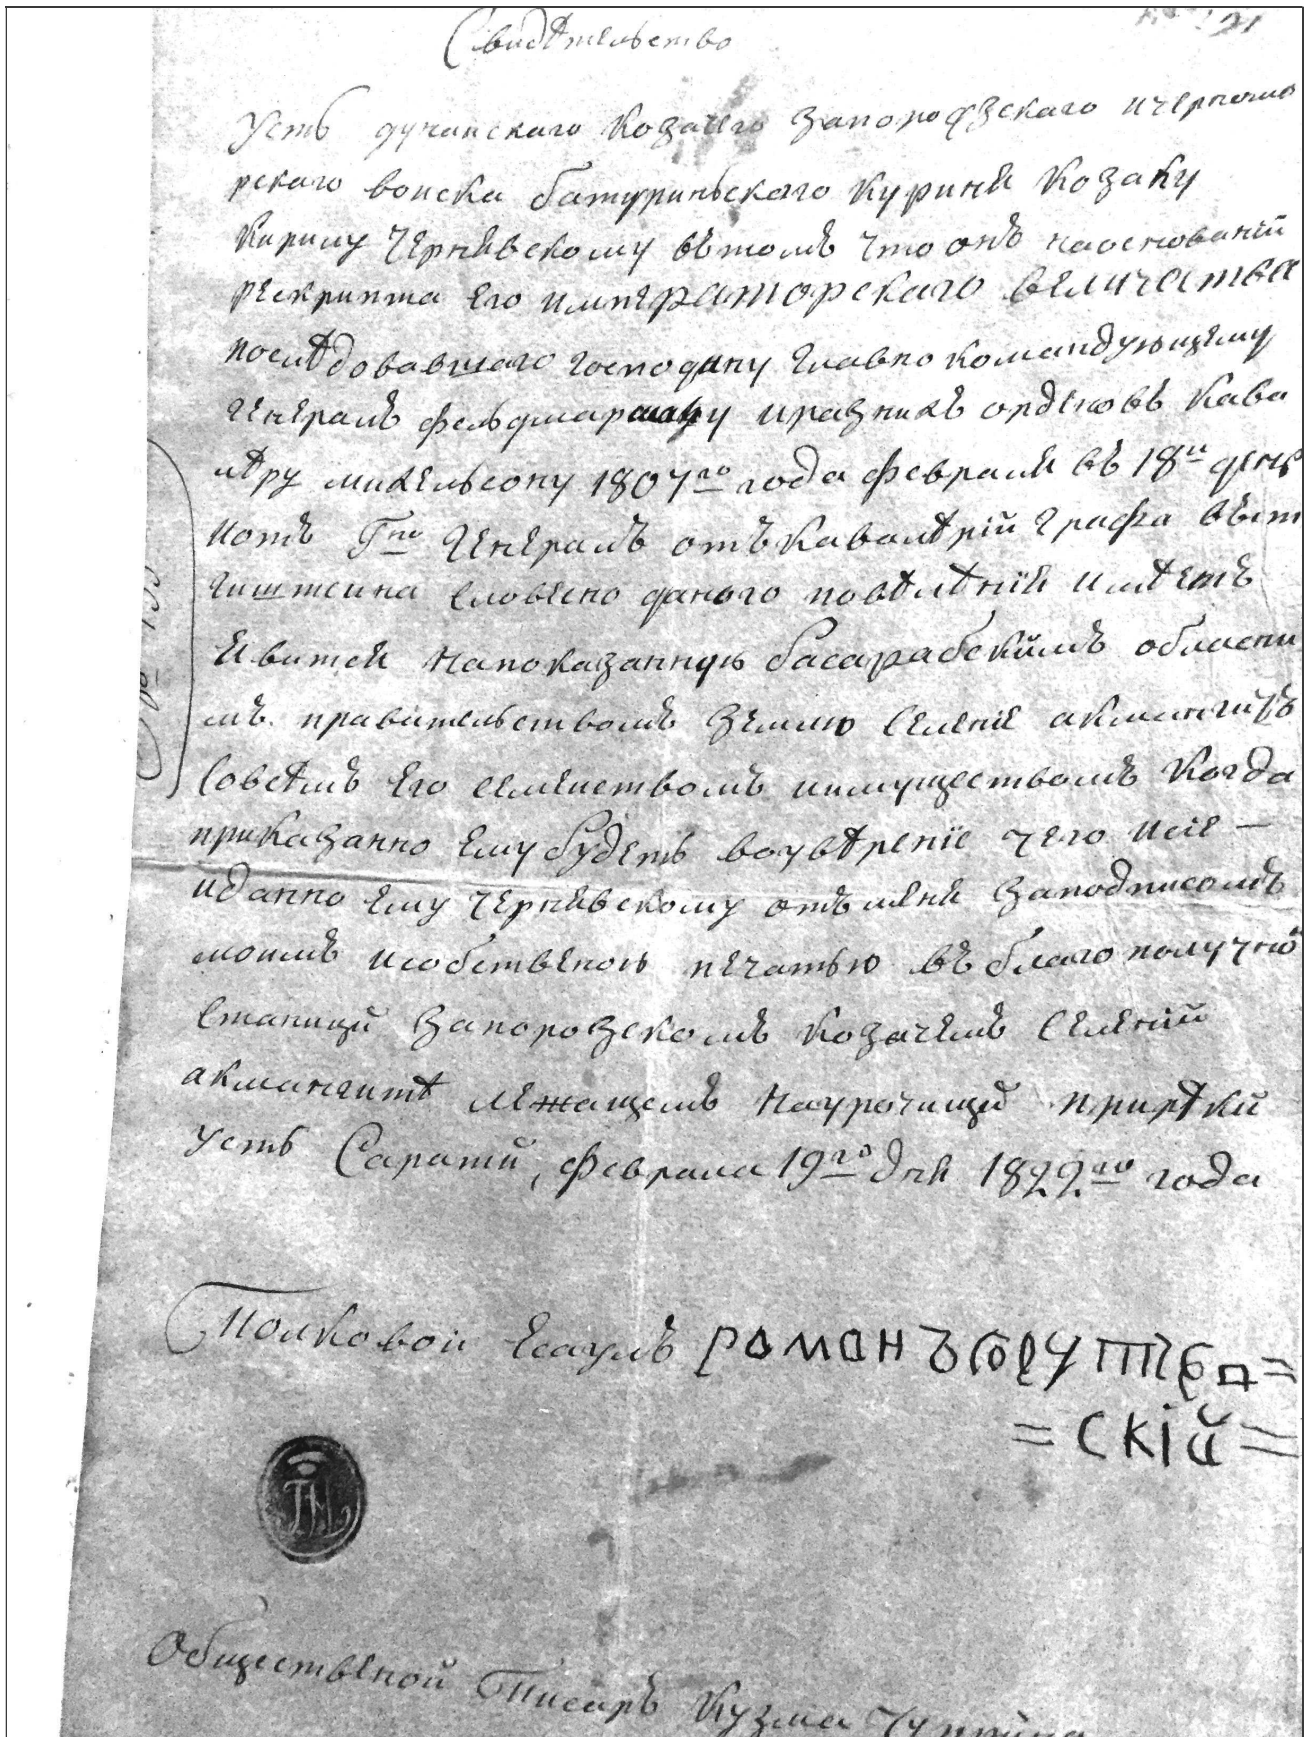 Свидѣтельство
Усть дунаискаго Козачего Запорозскаго ичерномо
рскаго воиска батуриньскаго Куриня Козаку
Кирилу Чернявскому вътомъ что онъ наоснованій
рескрипта Его императорскаго величества
послѣдовавшаго господину Главно командующему
Генералъ фельдмаршалу иразнихъ орденовъ Кава
лѣру михельсону 1807го года февраля въ 18и день
иотъ Гна Генералъ отъКавалѣрій Графа Вѣт
гиштеина словесно даного повѣлѣнія имѣетъ
явитси напоказанную басарабскимъ областни
мъ правительствомъ Землю Селеніе акмангитъ
Совсѣмъ Его семеиствомъ иимуществомъ Когда
приказанно Ему будетъ воувѣреніе чего исіе —
иданно Ему Чернявскому отъменя Заподписомъ
моимъ исобственою печатью въ благополучно
Станицы Запорозскомъ Козачемъ Селеній
акмангитѣ лежащемъ Научочищи прирѣки
Усть Сараты, февраля 19го дня 1822го года
Полковои Есаулъ романъ
=скій=
Общественой Писаръ Кузма